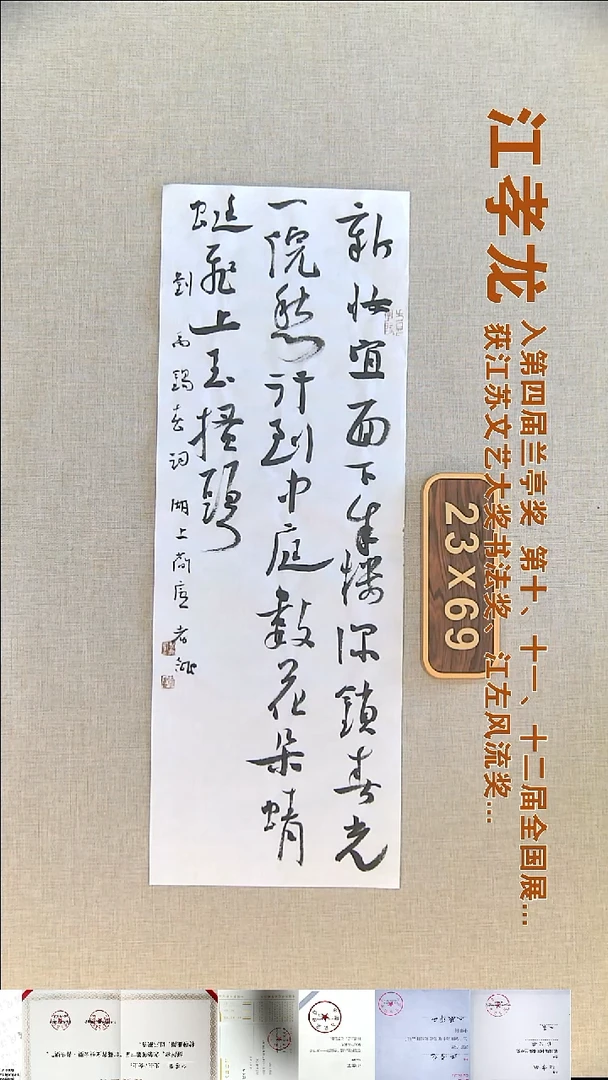 江孝龙
入第四届兰亭奖 第十、十一、十二届全国展...
获江苏文艺大奖书法奖、江左风流奖...
23x69
新妆宜面下朱樓深鎖春光
一院愁行到中庭數花朵蜻
蜓飛上玉搔頭
劉禹錫春詞 湖上尚 孝龍